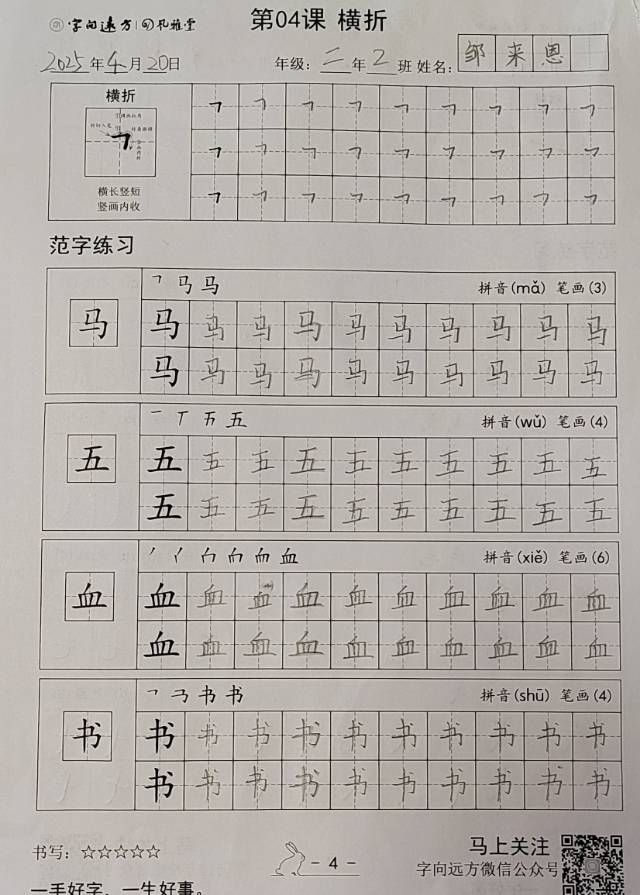 字向远方 孔雅堂 第04课 横折
2025年4月20日 年级：二年2班 姓名：邹来恩
横折
横长竖短
竖画内收
范字练习
马 拼音(mǎ) 笔画(3)
马 马 马 马 马 马 马 马 马 马 马
马 马 马 马 马 马 马 马 马 马
一 丆 五 五 拼音(wǔ) 笔画(4)
五 五 五 五 五 五 五 五 五 五 五
五 五 五 五 五 五 五 五 五 五
血 拼音(xiě) 笔画(6)
血 血 血 血 血 血 血 血 血 血 血
血 血 血 血 血 血 血 血 血 血
书 书 拼音(shū) 笔画(4)
书 书 书 书 书 书 书 书 书 书 书
书 书 书 书 书 书 书 书 书 书
书写：☆☆☆☆☆ - 4 - 马上关注
字向远方微信公众号
一手好字，一生好事。